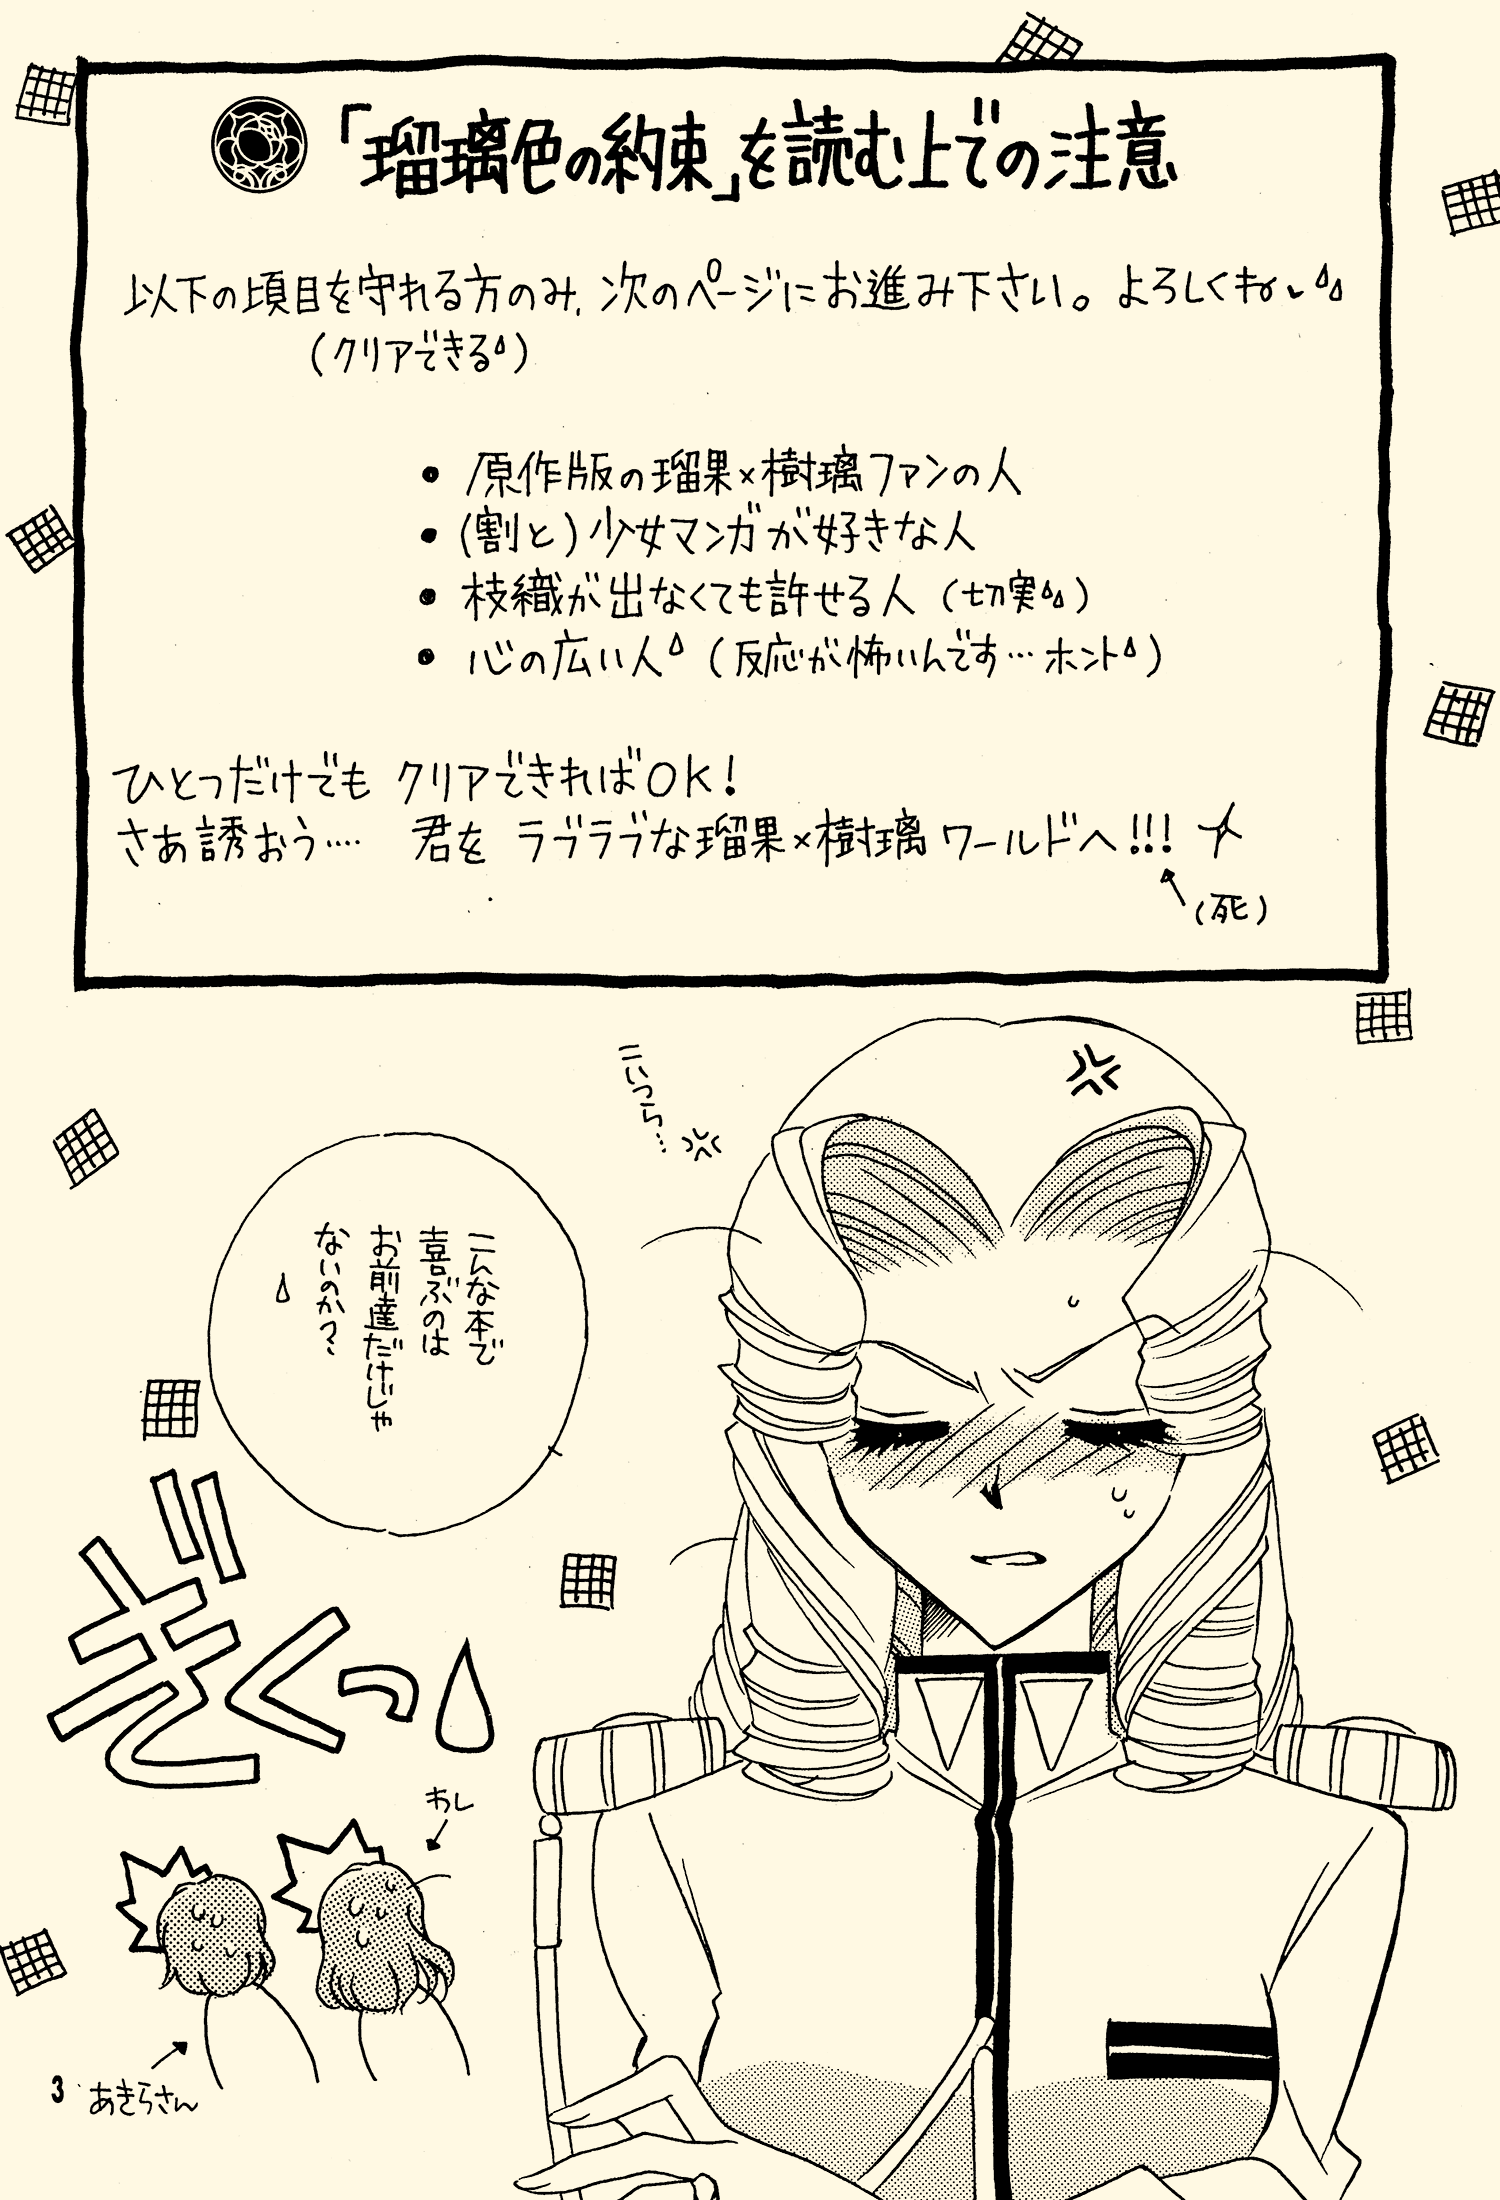 「瑠璃色の約束」を読む上での注意
以下の項目を守れる方のみ、次のページにお進み下さい。よろしくねっ
(クリアできる)
• 原作版の瑠果×樹璃ファンの人
• (割と)少女マンガが好きな人
• 枝織が出なくても許せる人 (切実)
• 心の広い人 (反応が怖いんです…ホント)
ひとつだけでも クリアできればOK!
さあ誘おう…. 君を ラブラブな瑠果×樹璃ワールドへ!!!
(死)
こいつら…
こんな本で
喜ぶのは
お前達だけじゃ
ないのか?
ぎくっ
わし
あきらさん
3